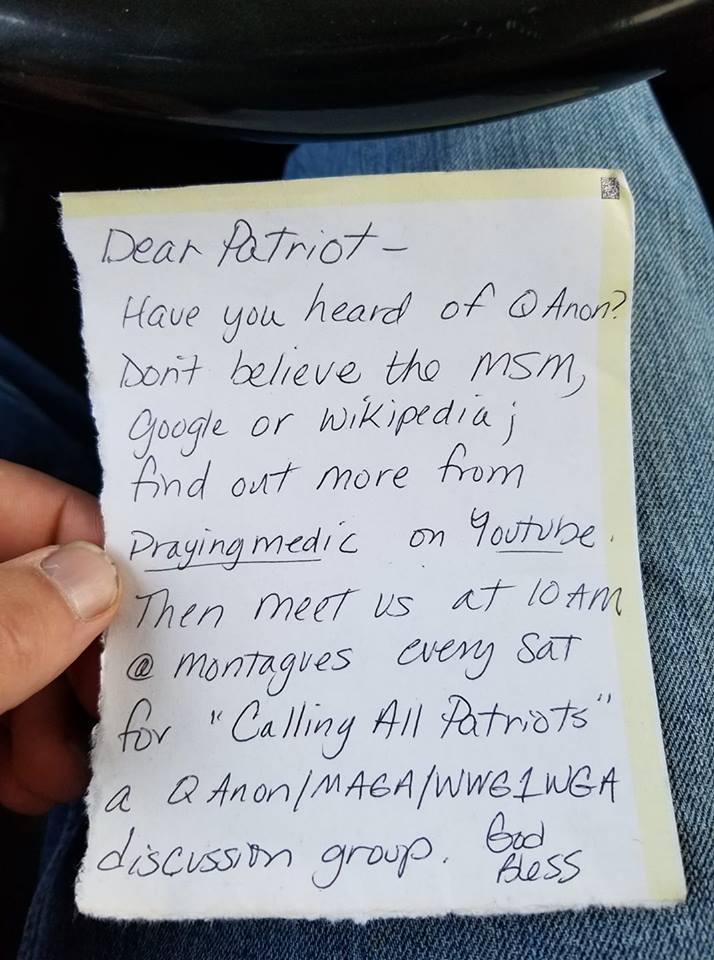 Dear Patriot -
Have you heard of Q Anon?
Don't believe the MSM,
Google or Wikipedia;
find out more from
Prayingmedic on Youtube.
Then meet us at 10 AM
@ Montagues every Sat
for "Calling All Patriots"
a Q Anon/MAGA/WWG1WGA
discussion group. God
Bless